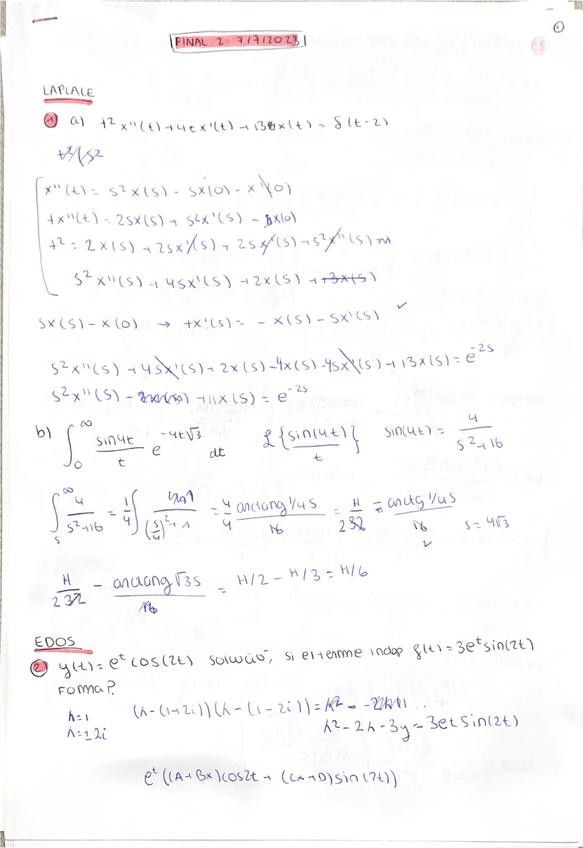 FINAL 2: 7/7/2023
LAPLACE
1 a) t²x''(t)+4tx'(t)+13x(t) = δ(t-2)
x''(t) = s²x(s) - sx(0) - x'(0)
tx''(t) = 2sx(s) + s²x'(s) - x(0)
t² = 2x(s) + 2sx'(s) + 2sx'(s) + s²x''(s)
s²x''(s) + 4sx'(s) + 2x(s) + 13x(s)
sx(s) - x(0) → tx'(s) = - x(s) - sx'(s)
s²x''(s) + 4sx'(s) + 2x(s) - 4x(s) - 4sx'(s) + 13x(s) = e^-2s
s²x''(s) + 11x(s) = e^-2s
b) ∫₀^∞ sin4t/t e^-4t√3 dt L{sin(4t)/t} sin(4t) = 4/s²+16
∫ₛ^∞ 4/s²+16 = 1/4 ∫ 1/(s/4)²+1 = 4/4 arctang 1/4s = π/2 - arctg 1/4s s = 4√3
π/2 - arctang √3 = π/2 - π/3 = π/6
EDOS
2 y(t) = e^t cos(2t) solució, si el terme indep f(t) = 3e^t sin(2t)
Forma?
λ=1 (λ-(1+2i))(λ-(1-2i)) =
λ=±2i λ²-2λ-3y = 3et sin(2t)
e^t((A+Bx)cos2t + (Cx+D)sin(2t))